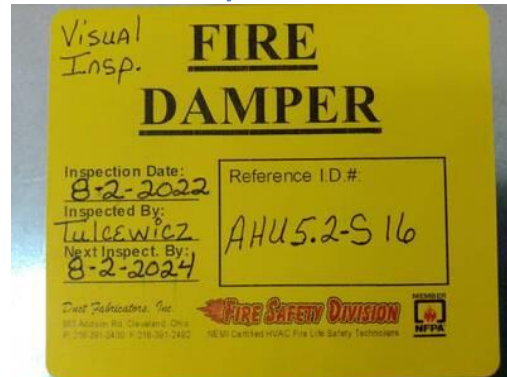 Visual
Insp.
FIRE
DAMPER
Inspection Date:
8-2-2022
Inspected By:
Tulcewicz
Next Inspect. By:
8-2-2024
Reference I.D.#:
AHU5.2-S 16
Duct Fabricators, Inc.
883 Addison Rd. Cleveland, Ohio
P: 216-391-2430 F: 216-391-2492
FIRE SAFETY DIVISION
NEMI Certified HVAC Fire Life Safety Technicians
MEMBER
NFPA